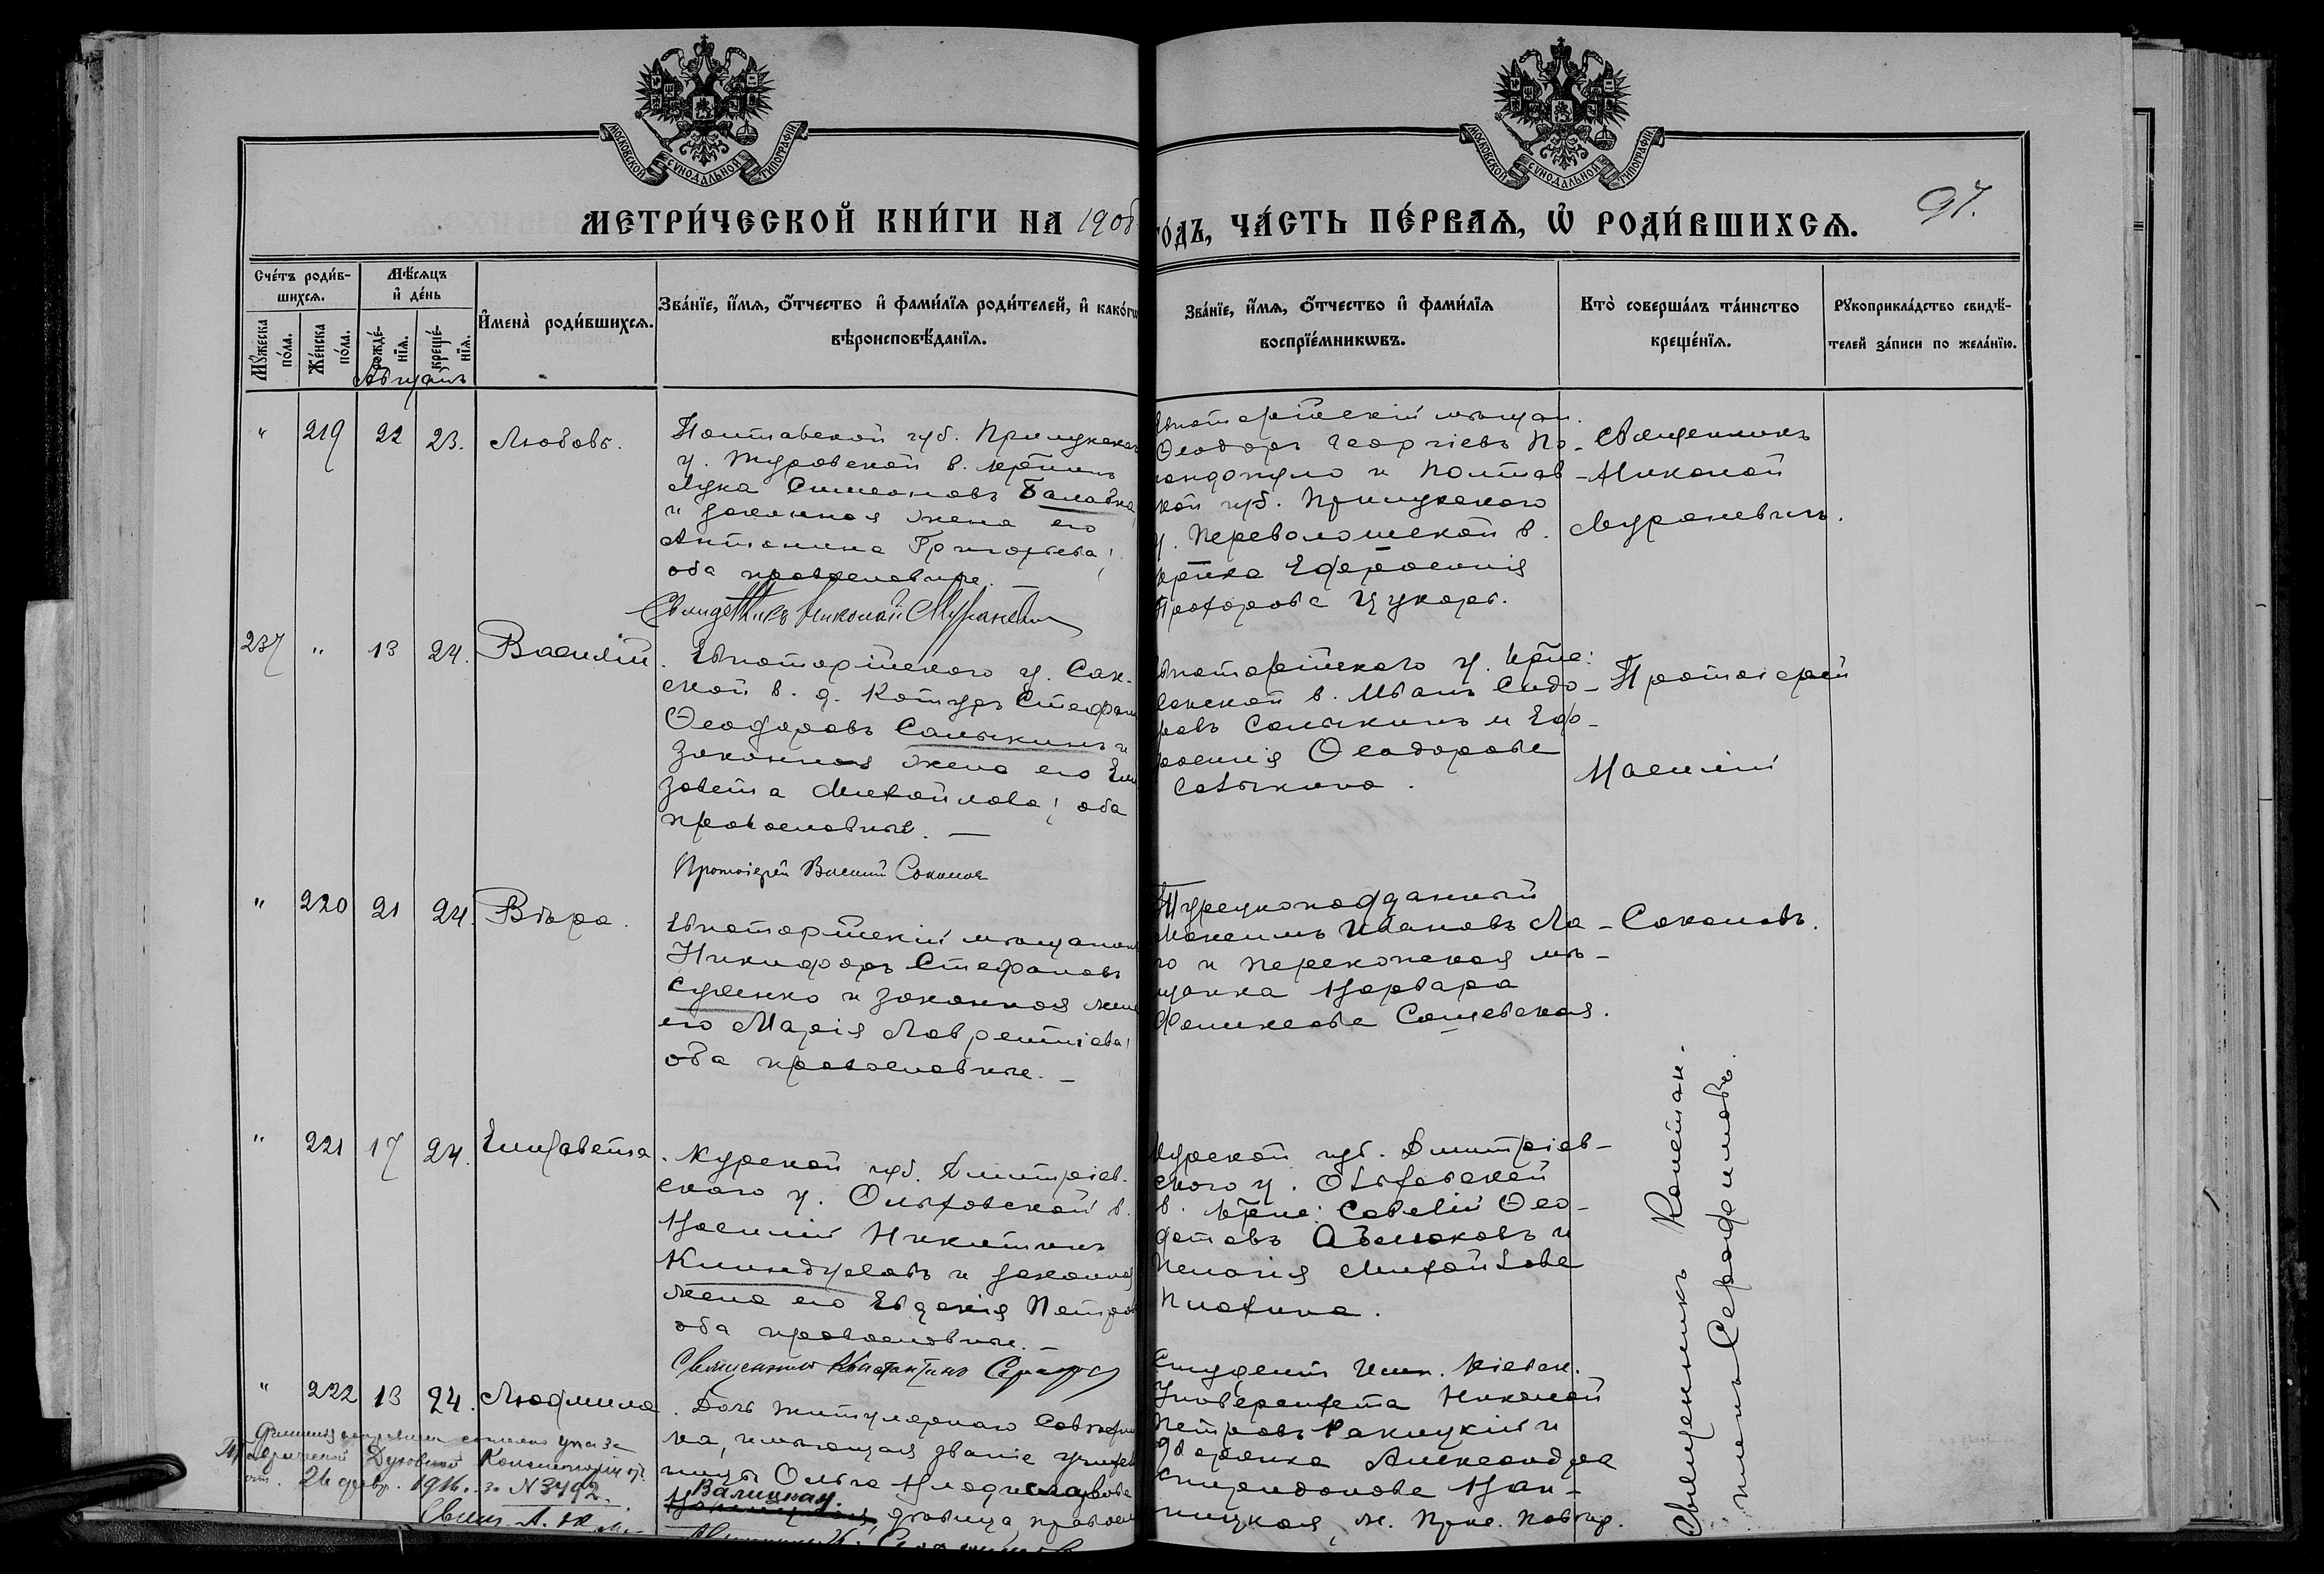 МОСКОВСКОЙ СѴНОДАЛЬНОЙ ТИПОГРАФІИ
МОСКОВСКОЙ СѴНОДАЛЬНОЙ ТИПОГРАФІИ
97.
МЕТРИ́ЧЕСКОЙ КНИ́ГИ НА 1908
го́дъ, ЧА́СТЬ ПЕ́РВАѦ, Ѡ҆ РОДИ́ВШИХСѦ.
Сче́тъ роди́в-
шихсѧ.
Мꙋ́жеска по́ла.
Же́нска по́ла.
Мѣ́сѧцъ
и҆ де́нь
рожде́-нїѧ.
креще́-нїѧ.
Августъ
И҆мена̀ роди́вшихсѧ.
Зва́нїе, и҆́мѧ, ѻ҆́тчество и҆ фами́лїѧ роди́телей, и҆ како́гѡ
вѣроисповѣ́данїѧ.
Зва́нїе, и҆́мѧ, ѻ҆́тчество и҆ фами́лїѧ
воспрїе́мникѡвъ.
Кто̀ соверша́лъ та́инство
креще́нїѧ.
Рꙋкоприкла́дство свидѣ́-
телей за́писи по жела́нїю.
" 219 22 23. Любовь.
Полтавской губ. Прилукскаго
у. Журовской в. кр-нинъ
Лука Симеоновъ Балавка
и законная жена его
Антонина Григорьева;
оба православные. —
Священникъ Николай Мураневичъ
Евпаторійскій мѣщан.
Ѳеодоръ Георгіевъ По-
пандопуло и Полтав-
кой губ. Прилукскаго
у. Переволочской в.
кр-нка Ефросинія
Прохорова Цукорь.
Священникъ
Николай
Мураневичъ.
237 " 13 24. Василій.
Евпаторійскаго у. Сак-
ской в. д. Контуръ Стефан
Ѳеодоровъ Салыкинъ и
законная жена его Ели
завета Михайлова; оба
православные. —
Протоіерей Василій Соколов
Евпаторійскаго у. кр-не:
Сакской в. Иванъ Сидо-
ровъ Салыкинъ и Еф-
росинія Ѳеодорова
Салыкина.
Протоіерей
Василій
Соколовъ.
" 220 21 24. Вѣра.
Евпаторійскій мѣщанинъ
Никифоръ Стефановъ
Суженко и законная жена
его Марія Лаврентіева;
оба православные. —
Турецкоподданный
Максимъ Ивановъ Ла-
го и Перекопская мѣ-
щанка Варвара
Феликсова Сощевская.
" 221 17 24. Елизавета.
Курской губ. Дмитріев-
скаго у. Ольховской в.
Василій Никитинъ
и законная
жена его Евдокія Петров
оба православные. —
Священникъ Константинъ
Курской губ. Дмитріев-
скаго у. Ольховской
в. кр-не: Савелій Ѳео-
датовъ Аблоковъ и
Пелагія Михайлова
Плохина.
Священникъ Констан-
тинъ Серафимовъ.
" 222 13 24. Людмила.
Дочь титулярнаго Совѣтни
ка, имѣющая званіе учител
ницы Ольга Владиславова
Валицкая.
дѣвица, правосл
Студентъ Имп. Кіевск.
Университета Николай
Петровъ Ракицкій и
дворянка Александра
Спиридонова Нак-
ницкая,
Фамилія исправлена согласно указа
Таврической Духовной Консисторіи
отъ 26 февр. 1916. за N 3492.
Свящ. А.